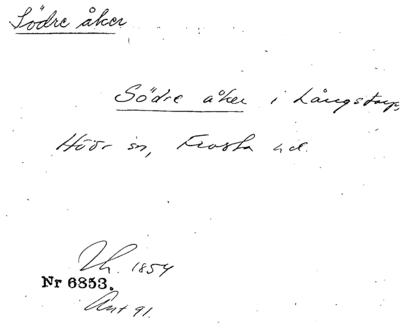 Södre åker
Södre åker i Långstorp,
Höör sn, Frosta hd.
Lh. 1854
Nr 6853.
Ant 91.